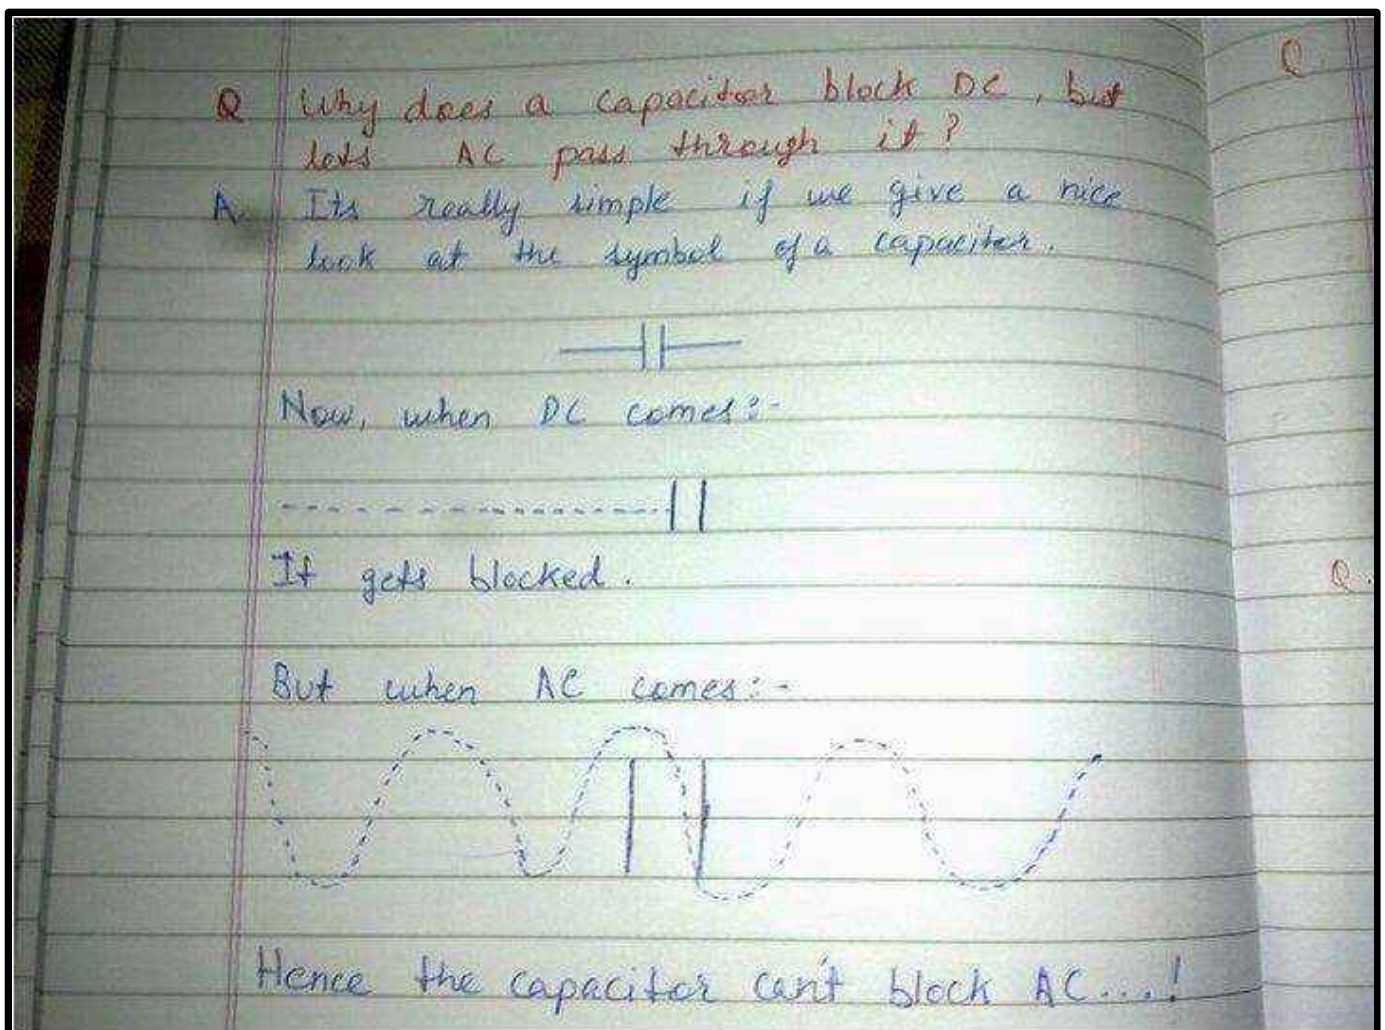 Q Why does a capacitor block DC, but
lets AC pass through it?
A. Its really simple if we give a nice
look at the symbol of a capacitor.
Now, when DC comes:-
It gets blocked.
But when AC comes:-
Hence the capacitor can't block AC....!
Q
Q.